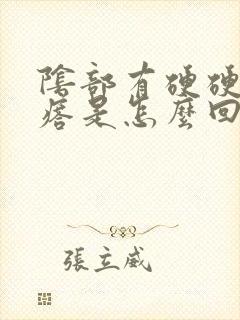 陰部有硬硬
瘩是怎麼回
張立威